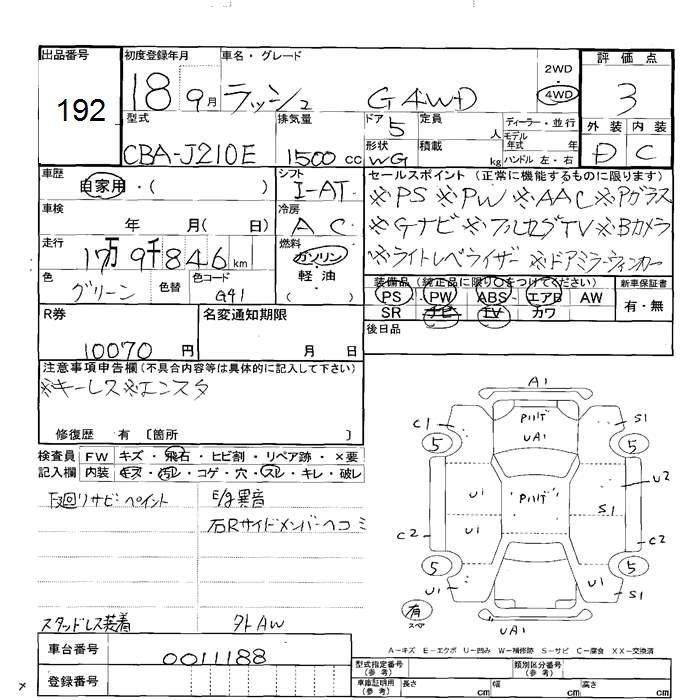 出品番号
192
初度登録年月
18 9月
車名・グレード
ラッシュ G4WD
2WD
・
4WD
評価点
3
型式
CBA-J210E
排気量
1500 cc
ドア 5
形状 WG
定員 人
積載 kg
ディーラー・並行
モデル年式 年
ハンドル 左・右
外装 内装
D C
車歴
自家用・( )
シフト
I-AT
車検
年 月( 日)
冷房
AC
走行
17万9千846km
燃料
ガソリン
軽油
( )
色
グリーン
色替
色コード
G41
セールスポイント (正常に機能するものに限ります)
※PS ※PW ※AAC ※Pガラス
※Gナビ ※フルセグTV ※Bカメラ
※ライトレベライザー ※ドアミラーウィンカー
装備品(純正品に限り○をつけてください)
PS PW ABS エアB AW
SR ナビ TV カワ
新車保証書
有・無
後日品
R券
10070 円
名変通知期限
月 日
注意事項申告欄(不具合内容等は具体的に記入して下さい)
※キーレス※エンスタ
修復歴 有 〔箇所 〕
検査員記入欄
FW キズ・飛石・ヒビ割・リペア跡・×要
内装 キズ・汚レ・コゲ・穴・スレ・キレ・破レ
下廻リサビペイント
E/g異音
右Rサイドメンバーヘコミ
スタッドレス装着
外AW
A1
C1
PハゲUA1
S1
5
5
U1
Pハゲ
U2
U1
S1
C2
C2
5
5
U1
U1
S1
有
スペア
UA1
A-キズ E-エクボ U-凹み W-補修跡 S-サビ C-腐食 XX-交換済
車台番号
0011188
登録番号
型式指定番号(参考)
類別区分番号(参考)
車庫証明用(参考)
長さ cm
幅 cm
高さ cm